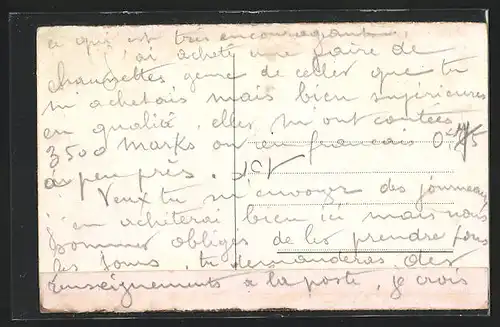 ce qui est très encourageant.
j'ai acheté une paire de
chaussettes genre de celles que tu
m'achetais mais bien supérieures
en qualité, elles m'ont coutées
3500 marks ou en francais 0f
à peu près.
Veux tu m'envoyer des journaux
j'en achèterai bien ici mais nous
sommes obligés de les prendre tous
les jours, tu demanderas des
renseignements à la poste, je crois